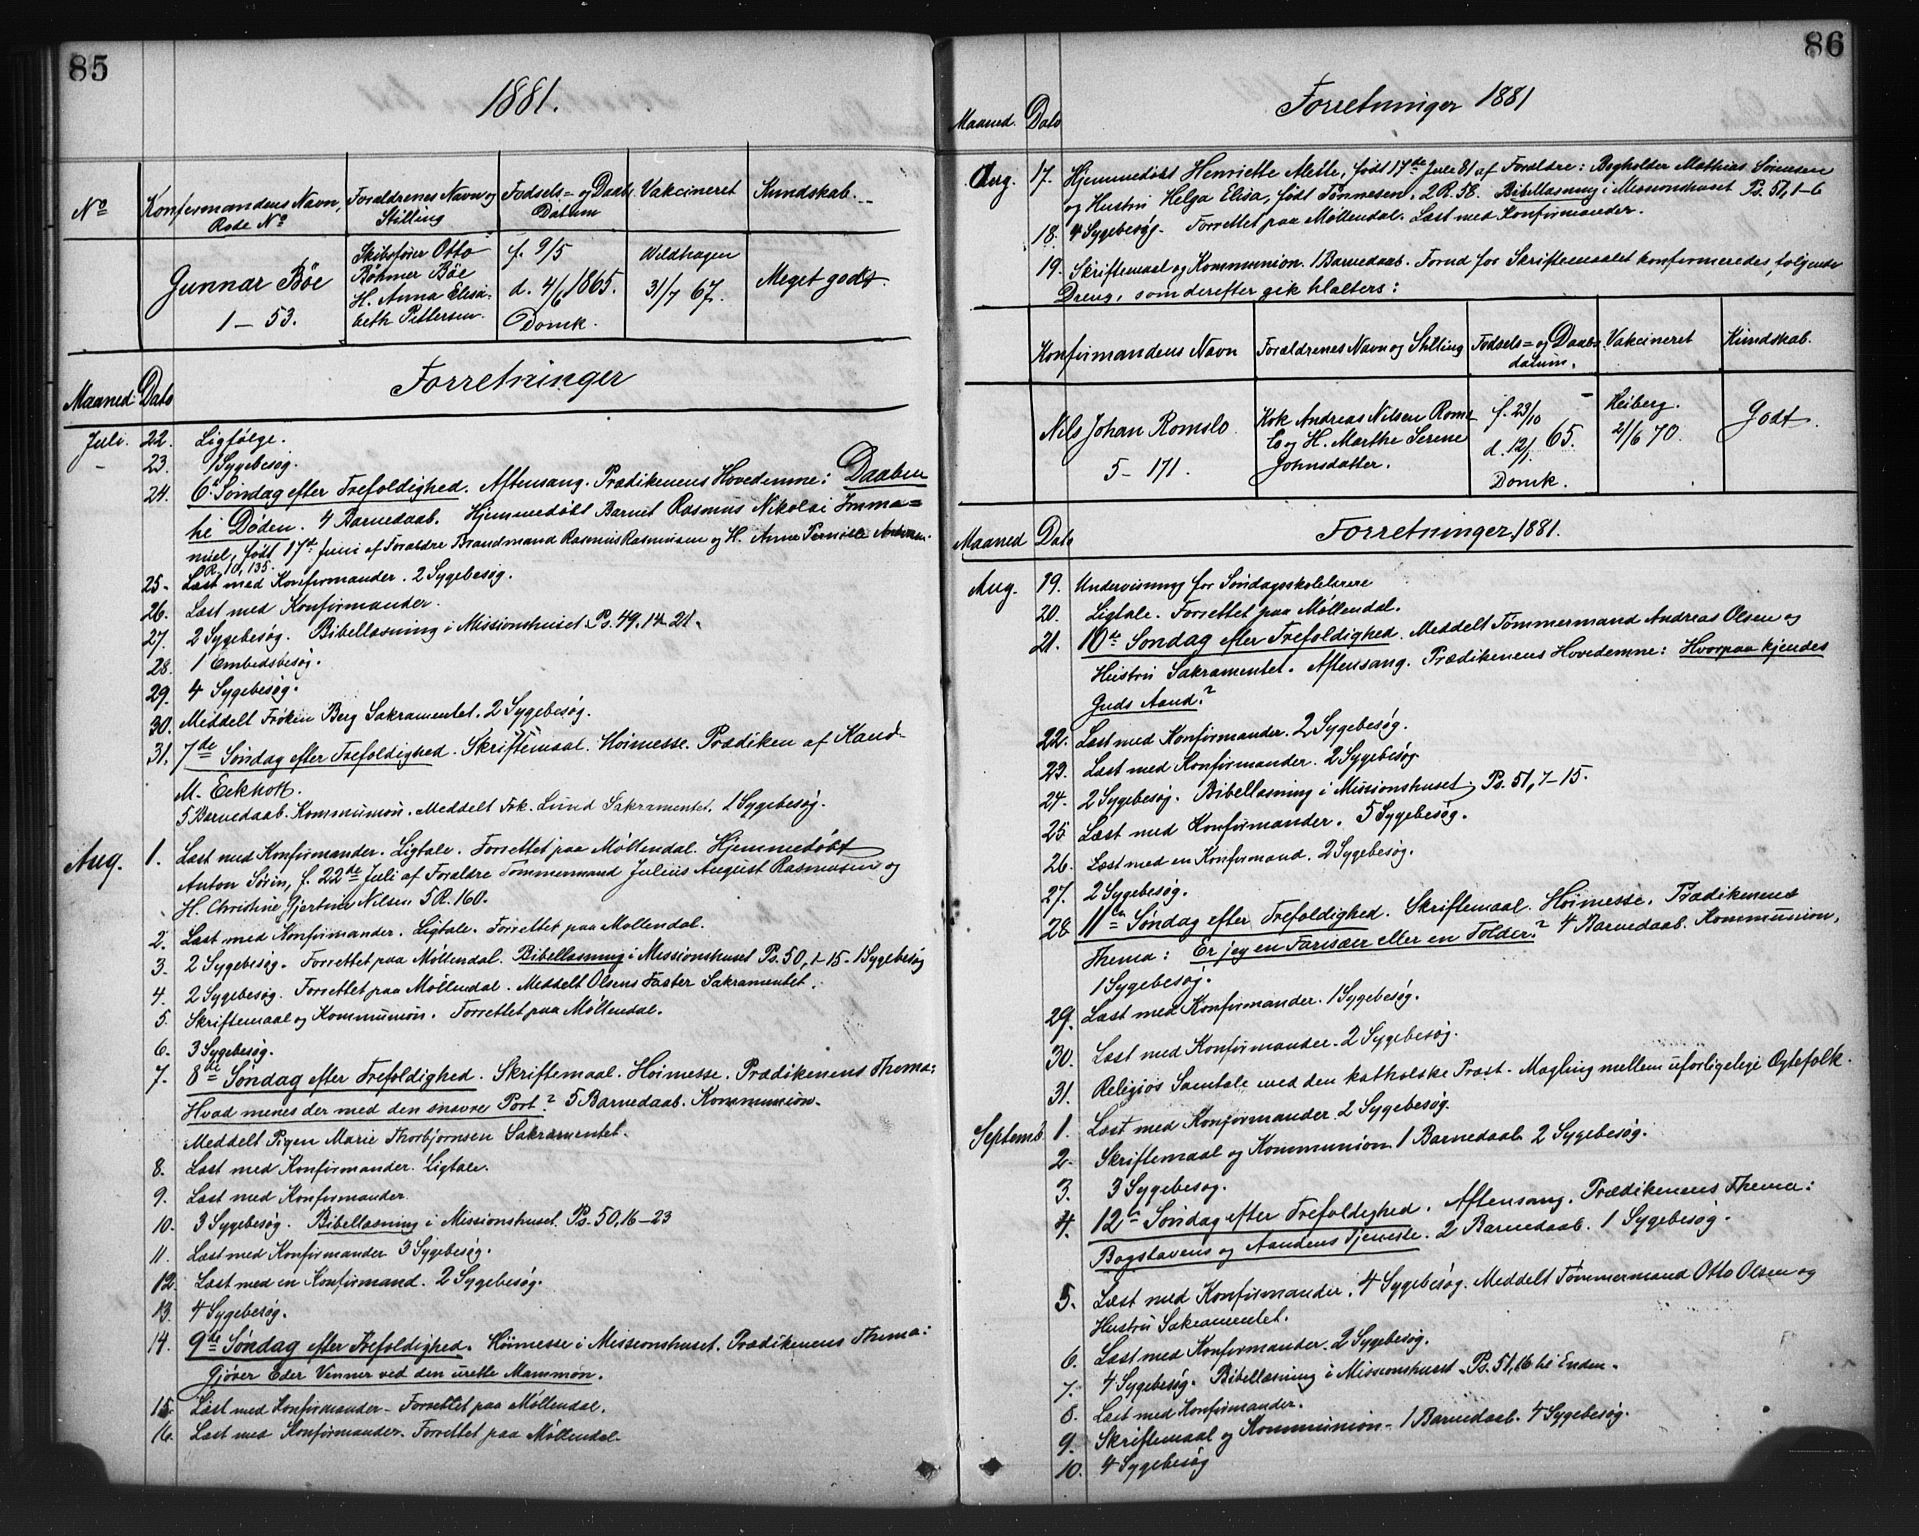 85
1881.
No
Konfirmandens Navn, Rode No
Forældrenes Navn og Stilling
Fødsels= og Daabs Datum
Vakcineret
Kundskab.
Gunnar Böe
1 – 53.
Skibsfører Otto
Bøhmer Böe
H. Anna Elisa-
beth Pettersen.
f. 9/5
d. 4/6 1865.
Domk.
Wildhagen
31/7 67.
Meget godt.
Forretninger
Maaned. Dato
Juli. 22. Ligfølge.
23. 1 Sygebesøg.
24. 6te Søndag efter Trefoldighed. Aftensang. Prædikenens Hovedemne: Daaben
til Døden. 4 Barnedaab. Hjemmedøbt Barnet Rasmus Nikolai Imma=
nuel, født 17de Juni af Forældre Brandmand Rasmus Rasmussen og H. Anne Pernille
R. 10, 135.
25. Læst med Konfirmander. 2 Sygebesøg.
26. Læst med Konfirmander.
27. 2 Sygebesøg. Bibellæsning i Missionshuset Ps. 49, 14–21.
28. 1 Embedsbesøg.
29. 4 Sygebesøg.
30. Meddelt Frøken Berg Sakramentet. 2 Sygebesøg.
31. 7de Søndag efter Trefoldighed. Skriftemaal. Høimesse. Prædiken af Kand.
M. Eckhoff.
5 Barnedaab. Kommunion. Meddelt Frk. Lund Sakramentet. 1 Sygebesøg.
Aug. 1. Læst med Konfirmander. Ligtale. Forrettet paa Møllendal. Hjemmedøbt
Anton Sørin, f. 22de Juli af Forældre Tømmermand Julius August Rasmussen og
H. Christine Gjertine Nilsen 5 R. 160.
2. Læst med Konfirmander. Ligtale. Forrettet paa Møllendal.
3. 2 Sygebesøg. Forrettet paa Møllendal. Bibellæsning i Missionshuset Ps. 50, 1–15. 1 Sygebesøg
4. 2 Sygebesøg. Forrettet paa Møllendal. Meddelt Olsens Faster Sakramentet.
5. Skriftemaal og Kommunion. Forrettet paa Møllendal.
6. 3 Sygebesøg.
7. 8de Søndag efter Trefoldighed. Skriftemaal. Høimesse. Prædikenens Thema:
Hvad menes der med den snævre Port? 5 Barnedaab. Kommunion.
Meddelt Pigen Marie Thorbjørnsen Sakramentet.
8. Læst med Konfirmander. Ligtale.
9. Læst med Konfirmander.
10. 3 Sygebesøg. Bibellæsning i Missionshuset. Ps. 50, 16–23
11. Læst med Konfirmander 3 Sygebesøg.
12. Læst med en Konfirmand. 2 Sygebesøg.
13. 4 Sygebesøg.
14. 9de Søndag efter Trefoldighed. Høimesse i Missionshuset. Prædikenens Thema:
Gjører Eder Venner ved den urette Mammon.
15. Læst med Konfirmander. Forrettet paa Møllendal.
16. Læst med Konfirmander. Forrettet paa Møllendal.
86
Forretninger 1881
Maaned. Dato
Aug. 17. Hjemmedøbt Henriette Mette, født 17de Juli 81 af Forældre: Bogholder Mathias Sørensen
og Hustru Helga Elisa, født Tønnesen. 2 R. 58. Bibellæsning i Missionshuset Ps. 51, 1–6
18. 4 Sygebesøg. Forrettet paa Møllendal. Læst med Konfirmander.
19. Skriftemaal og Kommunion. 1 Barnedaab. Forud for Skriftemaalet konfirmeredes følgende
Dreng, som derefter gik til alters:
Konfirmandens Navn
Forældrenes Navn og Stilling
Fødsels= og Daabs-datum.
Vakcineret
Kundskab.
Nils Johan Romslo.
5 – 171.
Kok Andreas Nilsen Roms-
lo og H. Marthe Serene
Johnsdatter.
f. 23/10
d. 12/1 65.
Domk.
Heiberg.
21/6 70.
Godt.
Forretninger, 1881.
Maaned Dato
Aug. 19. Undervisning for Søndagsskolelærere
20. Ligtale. Forrettet paa Møllendal.
21. 10de Søndag efter Trefoldighed. Meddelt Tømmermand Andreas Olsen og
Hustru Sakramentet. Aftensang. Prædikenens Hovedemne: Hvorpaa kjendes
Guds Aand?
22. Læst med Konfirmander. 2 Sygebesøg.
23. Læst med Konfirmander. 2 Sygebesøg
24. 2 Sygebesøg. Bibellæsning i Missionshuset Ps. 51, 7–15.
25 Læst med Konfirmander. 5 Sygebesøg.
26. Læst med en Konfirmand. 2 Sygebesøg.
27. 2 Sygebesøg.
28. 11te Søndag efter Trefoldighed. Skriftemaal. Høimesse. Prædikenens
Thema: Er jeg en Farisæer eller en Tolder? 4 Barnedaab. Kommunion.
1 Sygebesøg.
29. Læst med Konfirmander. 1 Sygebesøg.
30. Læst med Konfirmander. 2 Sygebesøg.
31. Religiøs Samtale med den katholske Præst. Mægling mellem uforligelige Ægtefolk.
Septemb. 1. Læst med Konfirmander. 2 Sygebesøg.
2. Skriftemaal og Kommunion. 1 Barnedaab. 2 Sygebesøg.
3. 3 Sygebesøg.
4. 12te Søndag efter Trefoldighed. Aftensang. Prædikenens Thema:
Bogstavens og Aandens Tjeneste. 2 Barnedaab. 1 Sygebesøg.
5. Læst med Konfirmander. 4 Sygebesøg. Meddelt Tømmermand Otto Olsen og
Hustru Sakramentet.
6. Læst med Konfirmander. 2 Sygebesøg.
7. 4 Sygebesøg. Bibellæsning i Missionshuset. Ps. 51, 16 til Enden.
8. Læst med Konfirmander.
9. Skriftemaal og Kommunion. 1 Barnedaab. 4 Sygebesøg.
10. 4 Sygebesøg